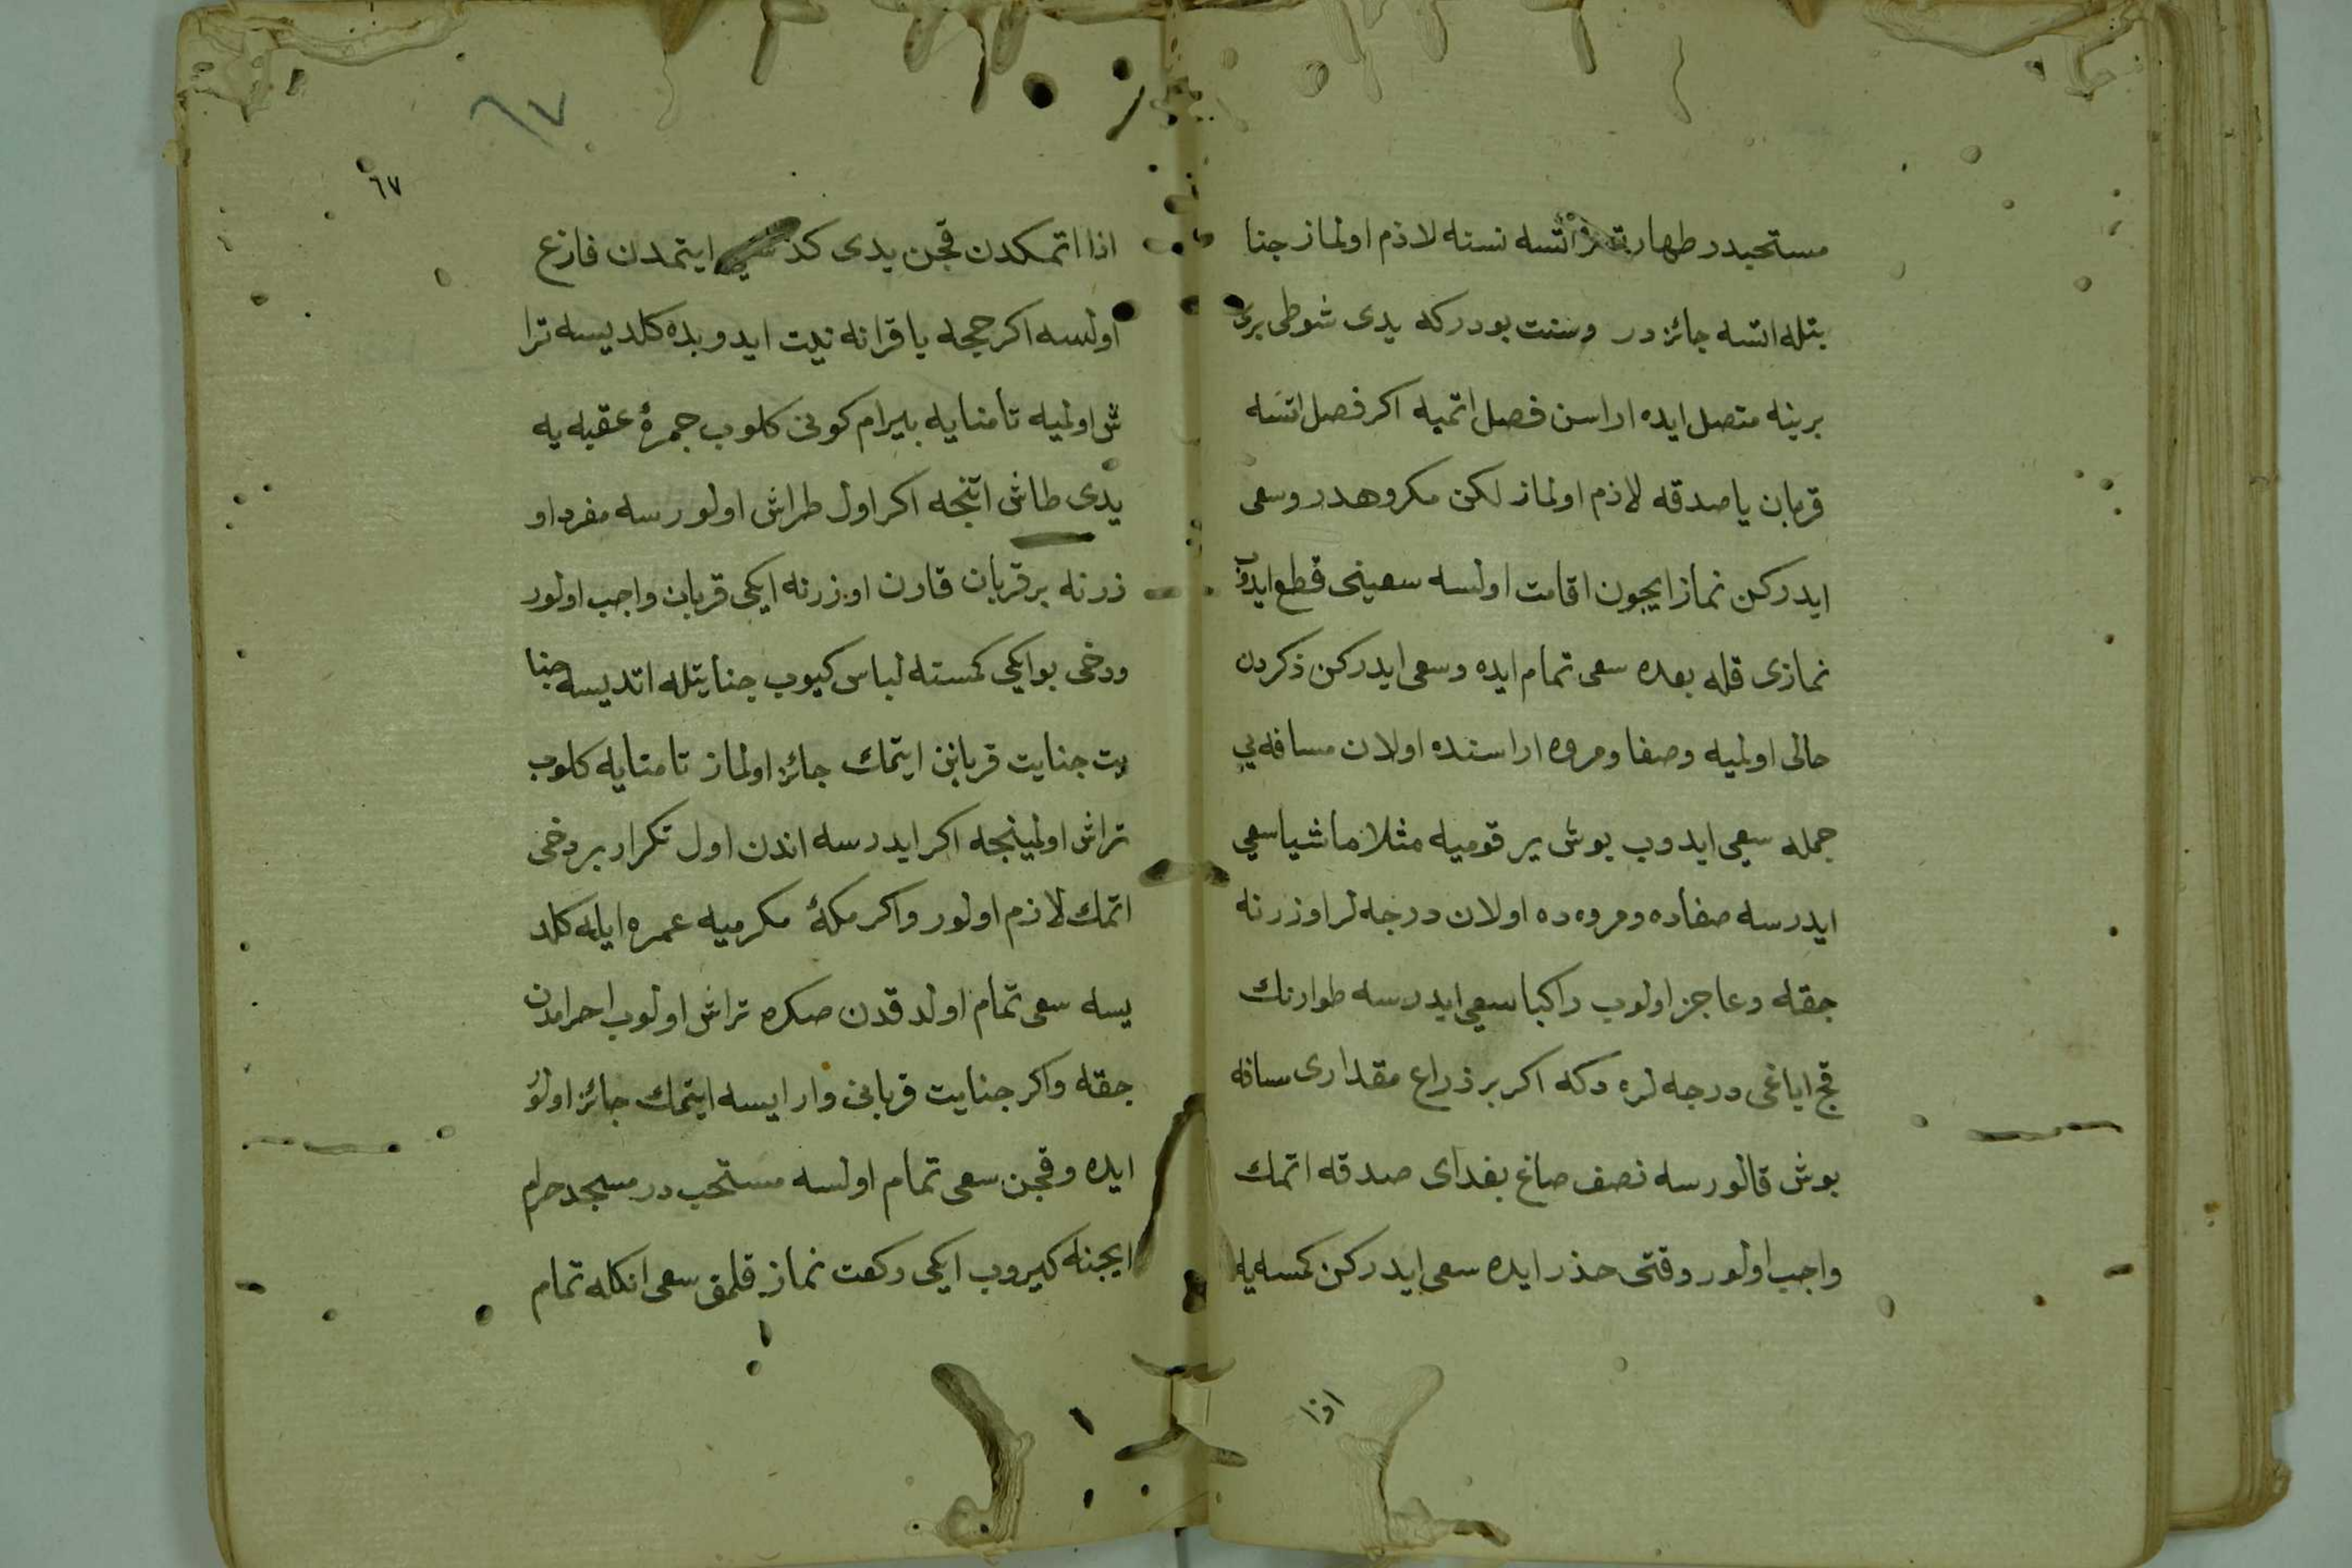 مستحبدر طهارتسز اتسه نسنه لازم اولماز جنا
بتله اتسه جائز در وسنت بودركه يدى شوطى برى
برينه متصل ايده اراسن فصل اتميه اكر فصل اتسه
قربان يا صدقه لازم اولماز لكن مكروهدر وسعى
ايدركن نماز ايچون اقامت اولسه سعينى قطع ايدوب
نمازى قله بعده سعى تمام ايده وسعى ايدركن ذكردن
خالى اولميه وصفا ومروه اراسنده اولان مسافه يى
جمله سعى ايدوب بوش ير قوميه مثلا ماشيا سعى
ايدرسه صفاده ومروه ده اولان درجه لر اوزرنه
جقه وعاجز اولوب راكبا سعى ايدرسه طوارنك
قچ اياغى درجه لره دكه اكر بر ذراع مقدارى مسافه
بوش قالورسه نصف صاع بغداى صدقه اتمك
واجب اولور وقتى حذر ايده سعى ايدركن كمسه يه
اذا
٦٧
٦٧
اذا اتمكدن قچن يدى كذ ايتمدن فارغ
اولسه اكر حجه يا قرانه نيت ايدوبده كلديسه ترا
ش اولميه تا منايه بيرام كونى كلوب جمرۀ عقبه يه
يدى طاش اتنجه اكر اول طراش اولورسه مفرد او
زرنه بر قربان قارن اوزرنه ايكى قربان واجب اولور
ودخى بو ايكى كمسنه لباس كيوب جنايتله اتديسه جنا
يت جنايت قربانن ايتمك جائز اولماز تا منايه كلوب
تراش اولمينجه اكر ايدرسه اندن اول تكرار بر دخى
اتمك لازم اولور واكر مكۀ مكرميه عمره ايله كلد
يسه سعى تمام اولدقدن صكره تراش اولوب احرامدن
جقه واكر جنايت قربانى وار ايسه ايتمك جائز اولور
ايده وقچن سعى تمام اولسه مستحب در مسجد حرام
ايچنه كيروب ايكى ركعت نماز قلمق سعى انكله تمام